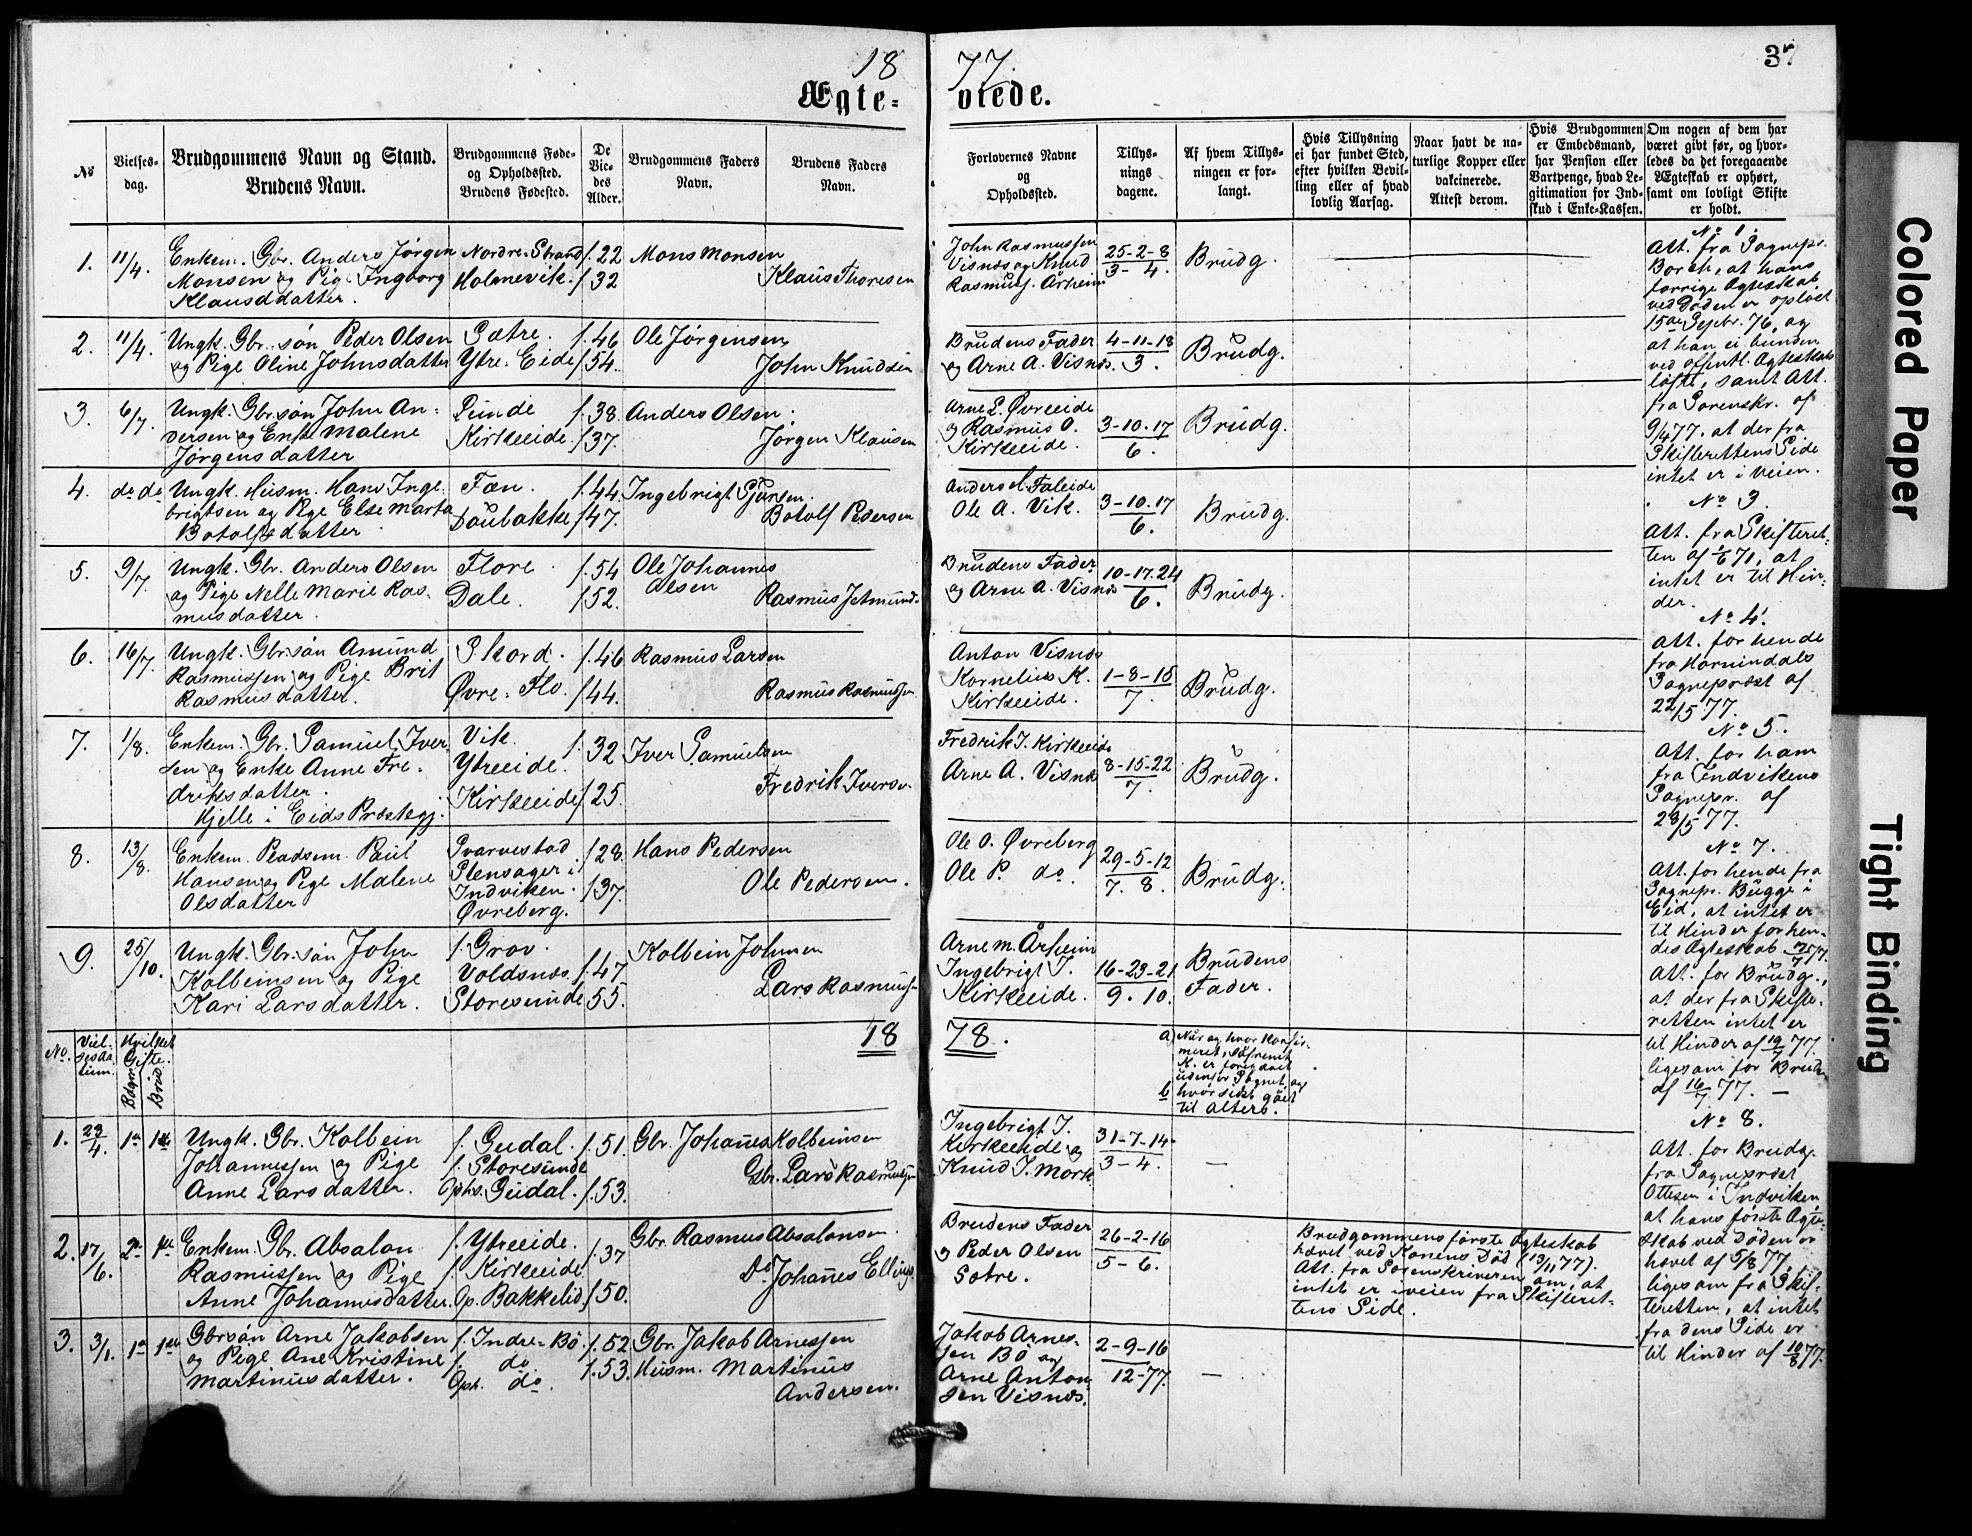 18 77.
37
Ægte= viede.
No
Vielses-
dag.
Brudgommens Navn og Stand.
Brudens Navn.
Brudgommens Føde-
og Opholdssted.
Brudens Fødested.
De
Vie-
des
Alder.
Brudgommens Faders
Navn.
Brudens Faders
Navn.
Forlovernes Navne
og
Opholdssted.
Tillys-
nings
dagene.
Af hvem Tillys-
ningen er for-
langt.
Hvis Tillysning
ei har fundet Sted,
efter hvilken Bevil-
ling eller af hvad
lovlig Aarsag.
Naar havt de na-
turlige Kopper eller
vakcinerede.
Attest derom.
Hvis Brudgommen
er Embedsmand,
har Pension eller
Vartpenge, hvad Le-
gitimation for Ind-
skud i Enke-Kassen.
Om nogen af dem har
været givt før, og hvor-
ledes da det foregaaende
Ægteskab er ophørt,
samt om lovligt Skifte
er holdt.
1. 11/4. Enkem. Gbr. Anders Jørgen Nordre-Strand f. 22 Mons Monsen
Monsen og Pig. Ingborg Holmevik. f 32 Klaus Thoresen
Klausdatter.
John Rasmussen
Visnæs og Knud
Rasmuss. Årheim
25-2-8
3- 4.
Brudg.
2. 11/4. Ungk. Gbr. søn Peder Olsen Sætre. f. 46 Ole Jørgensen
og Pige Oline Johnsdatter Ytre-Eide f 54. John Knudsen
Brudens Fader
og Arne A. Visnæs.
4-11-18
3.
Brudg.
3. 6/7. Ungk. Gbr.søn John An- Sunde f. 38. Anders Olsen.
dersen og Enke Malene Kirkeeide f 37. Jørgen Klausen
Jørgensdatter
Arne L. Øvreeide
og Rasmus O.
Kirkeeide.
3-10-17
6.
Brudg.
4. do do Ungk. Husm. Hans Inge- Fæn. f. 44. Ingebrigt Sjursen.
brigtsen og Pige Else Marta Daubakke f 47. Botolf Pedersen
Botolfsdatter
Anders M. Faleide
Ole A. Vik.
3-10-17
6.
Brudg.
5. 9/7. Ungk. Gbr. Anders Olsen Flore. f. 54 Ole Johannes
og Pige Nelle Marie Ras- Dale. f 52. Olsen Rasmus Jetmund-
musdatter.
Brudens Fader
og Arne A. Visnæs
10-17-24
6.
Brudg.
6. 16/7. Ungk. Gbr.søn Amund Skord. f. 46 Rasmus Larsen
Rasmussen og Pige Brit Øvre-Flo. f 44. Rasmus Rasmussen
Rasmusdatter.
Anton Visnæs
Kornelius K.
Kirkeeide.
1-8-15
7.
Brudg.
7. 1/8. Enkem. Gbr. Samuel Iver- Vik. f. 32 Iver Samuelsen
sen og Enke Anne Fre- Ytreeide.
driksdatter. Kirkeeide f 25. Fredrik Iversen
Hjelle i Eids Præstegj.
Fredrik I. Kirkeeide
Arne A. Visnæs
8-15-22
7.
Brudg.
8. 13/8. Enkem. Pladsem. Paul Svarvestad f 28. Hans Pedersen
Hansen og Pige Malene Stensager i
Olsdatter Indviken. f 37. Ole Pedersen.
Øvreberg.
Ole O. Øvreberg
Ole P. do.
29-5-12
7. 8.
Brudg.
9. 25/10. Ungk. Gbr.søn John f. Grov. Kolbein Johnsen
Kolbeinsen og Pige Voldsnæs. f. 47
Kari Larsdatter. Storesunde 55. Lars Rasmuss-
Arne M. Årheim
Ingebrigt I.
Kirkeeide.
16-23-21
9. 10.
Brudens
Fader.
18 78.
No. Viel-
sesda-
tum.
Hvilket
Gifte.
Bdgm.
Brud.
a) Når og hvor konfir-
meret, såfremt
K. er foregået
udenfor Sognet, og
b hvor sidst gået
til alters.
1. 23/4. 1ste 1ste Ungk. Gbr. Kolbein f. Gudal. f. 51. Gbr. Johannes Kolbeinsen
Johannessen og Pige f. Storesunde
Anne Larsdatter. Opho. Gudal. f. 53. Gbr. Lars Rasmussen
Ingebrigt I.
Kirkeeide og
Knud I. Mork
31-7-14-
3-4.
—
2. 17/6. 2det 1ste Enkem. Gbr. Absalon f. Ytreeide. f. 37 Gbr. Rasmus Absalonsen.
Rasmussen og Pige f. Kirkeeide
Anne Johannesdatter. Op. Bakkelid. f 50. Do Johanes Ellings
Brudens Fader
og Peder Olsen
Sætre.
26-2-16
5-6.
Brudgommens første Ægteskab
hævet ved Konens Død (13/11 77).
Att. fra Sorenskriveren om, at
intet er iveien fra Skifteret-
tens Side.
3. 3/1. 1ste 1ste Gbrsøn Arne Jakobsen f. Indre-Bø f. 52 Gbr. Jakob Arnessen
og Pige Ane Kristine f. do f. 53. Husm. Martinus
Martinusdatter. Oph. do. Andersen.
Jakob Arnes-
sen Bø og
Arne Anton-
sen Visnæs.
2-9-16
12-77.
—
No 1.
Att. fra Sognepr.
Borch, at hans
forrige Ægteskab
ved Døden er opløst
15de Septbr. 76, og
at han ei bunden
ved offentl. Ægteskabs
løfte, samt Att.
fra Sorenskr. af
9/4 77, at der fra
Skifterettens Side
intet er i veien.
No 3.
Att. fra Skifteret-
ten af 1/6 71, at
intet er til Hin-
der.
No 4.
Att. for hende
fra Hornindals
Sognepræst af
22/5 77.
No 5.
Att. for ham
fra Indvikens
Sognepr. af
28/5 77.
No 7.
Att. for hende fra
Sognepr. Bugge i
Eid, at intet er
til Hinder for hen-
des Ægteskab 17/7 77.
Att. for Brudg.,
at der fra Skifte-
retten intet er
til Hinder af 19/7 77.
ligesom for Bruden
af 16/7 77. —
No 8.
Att. for Brudg.
fra Sognepræst
Ottesen i Indviken
at hans første Ægte-
skab ved Døden er
hævet af 5/8 77,
ligesom fra Skif-
teretten, at intet
fra dens Side er
til Hinder af 10/8 77.
Colored Paper
Tight Binding